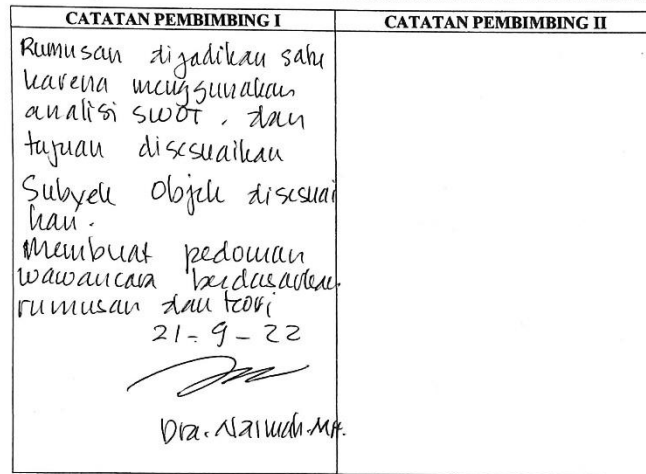 CATATAN PEMBIMBING I
CATATAN PEMBIMBING II
Rumusan dijadikan satu
karena menggunakan
analisi SWOT, dan
tujuan disesuaikan
Subyek Objek disesuai
kan.
Membuat pedoman
wawancara berdasarkan
rumusan dan teori
21-9-22
Dra.